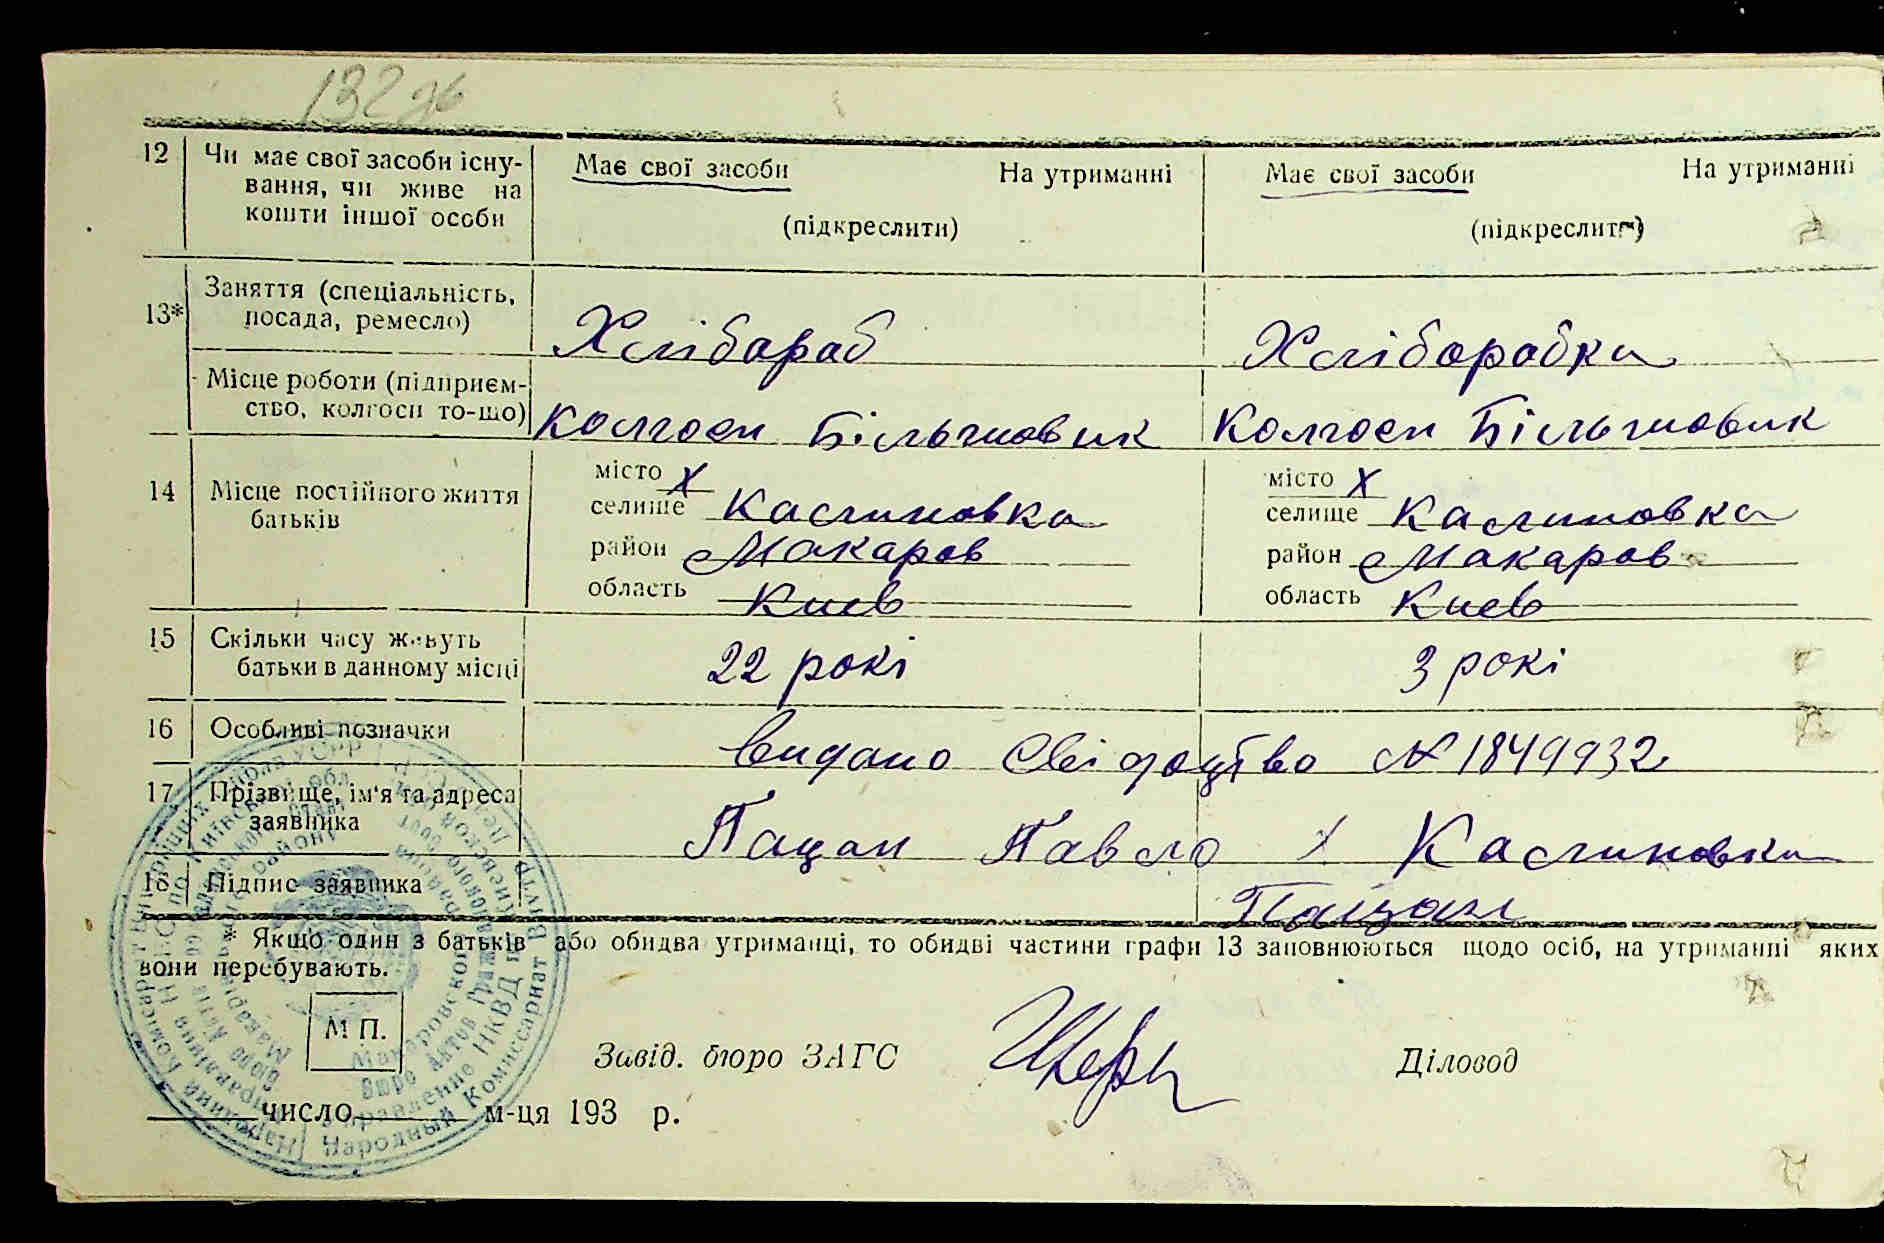 132 зв
12 Чи має свої засоби існу- Має свої засоби На утриманні Має свої засоби На утриманні
вання, чи живе на
кошти іншої особи (підкреслити) (підкреслити)
13* Заняття (спеціальність,
посада, ремесло) Хлібораб Хліборобка
Місце роботи (підприєм-
ство, колгосп то-що) Колгосп Більшовик Колгосп Більшовик
14 Місце постійного життя
батьків
місто X місто X
селище Калиновка селище Калиновка
район Макаров район Макаров
область Киев область Киев
15 Скільки часу живуть
батьки в данному місці 22 рокі 3 рокі
16 Особливі позначки Видано Свідоцтво № 1849932
17 Прізвище, ім'я та адреса
заявника Пацан Павло х Калиновка
18 Підпис заявника Пацан
* Якщо один з батьків або обидва утриманці, то обидві частини графи 13 заповнюються щодо осіб, на утриманні яких
вони перебувають.
М П.
Завід. бюро ЗАГС Діловод
число м-ця 193 р.
Народный Комиссариат Внутр
Управление НКВД по Киевской
Бюро Актов Гражданского
Макаровского